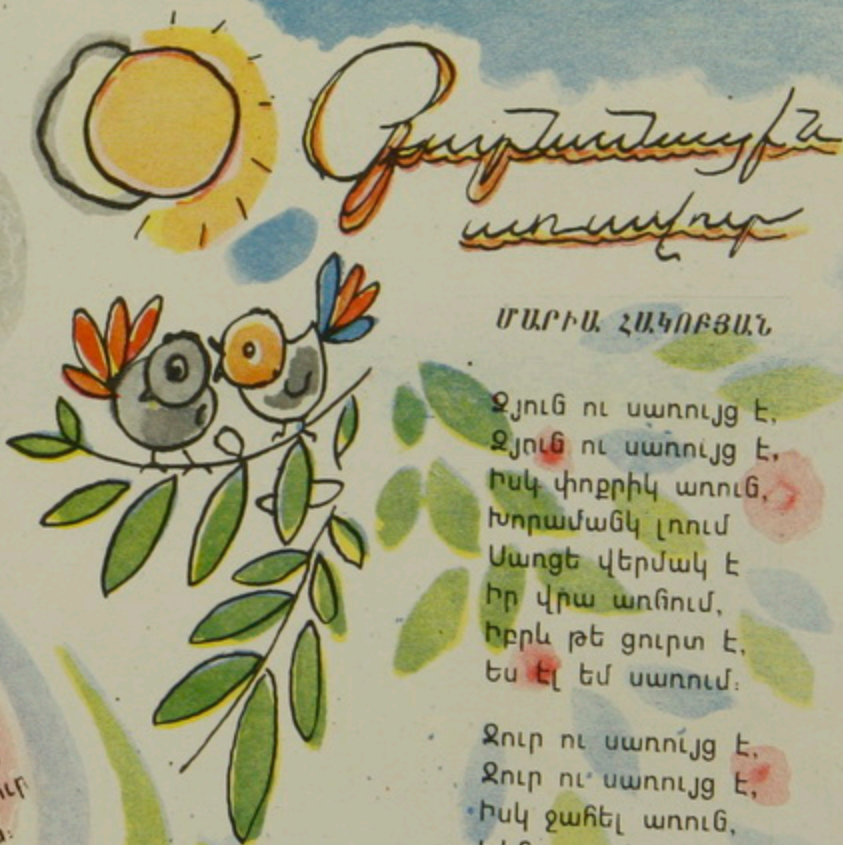 Գարնանային
առավոտ
ՄԱՐԻԱ ՀԱԿՈԲՅԱՆ
Ձյուն ու սառույց է,
Ձյուն ու սառույց է,
Իսկ փոքրիկ առուն,
Խորամանկ լռում
Սառցե վերմակ է
Իր վրա առնում,
Իբրև թե ցուրտ է,
Ես էլ եմ սառում։
Ջուր ու սառույց է,
Ջուր ու սառույց է,
Իսկ ջահել առուն,